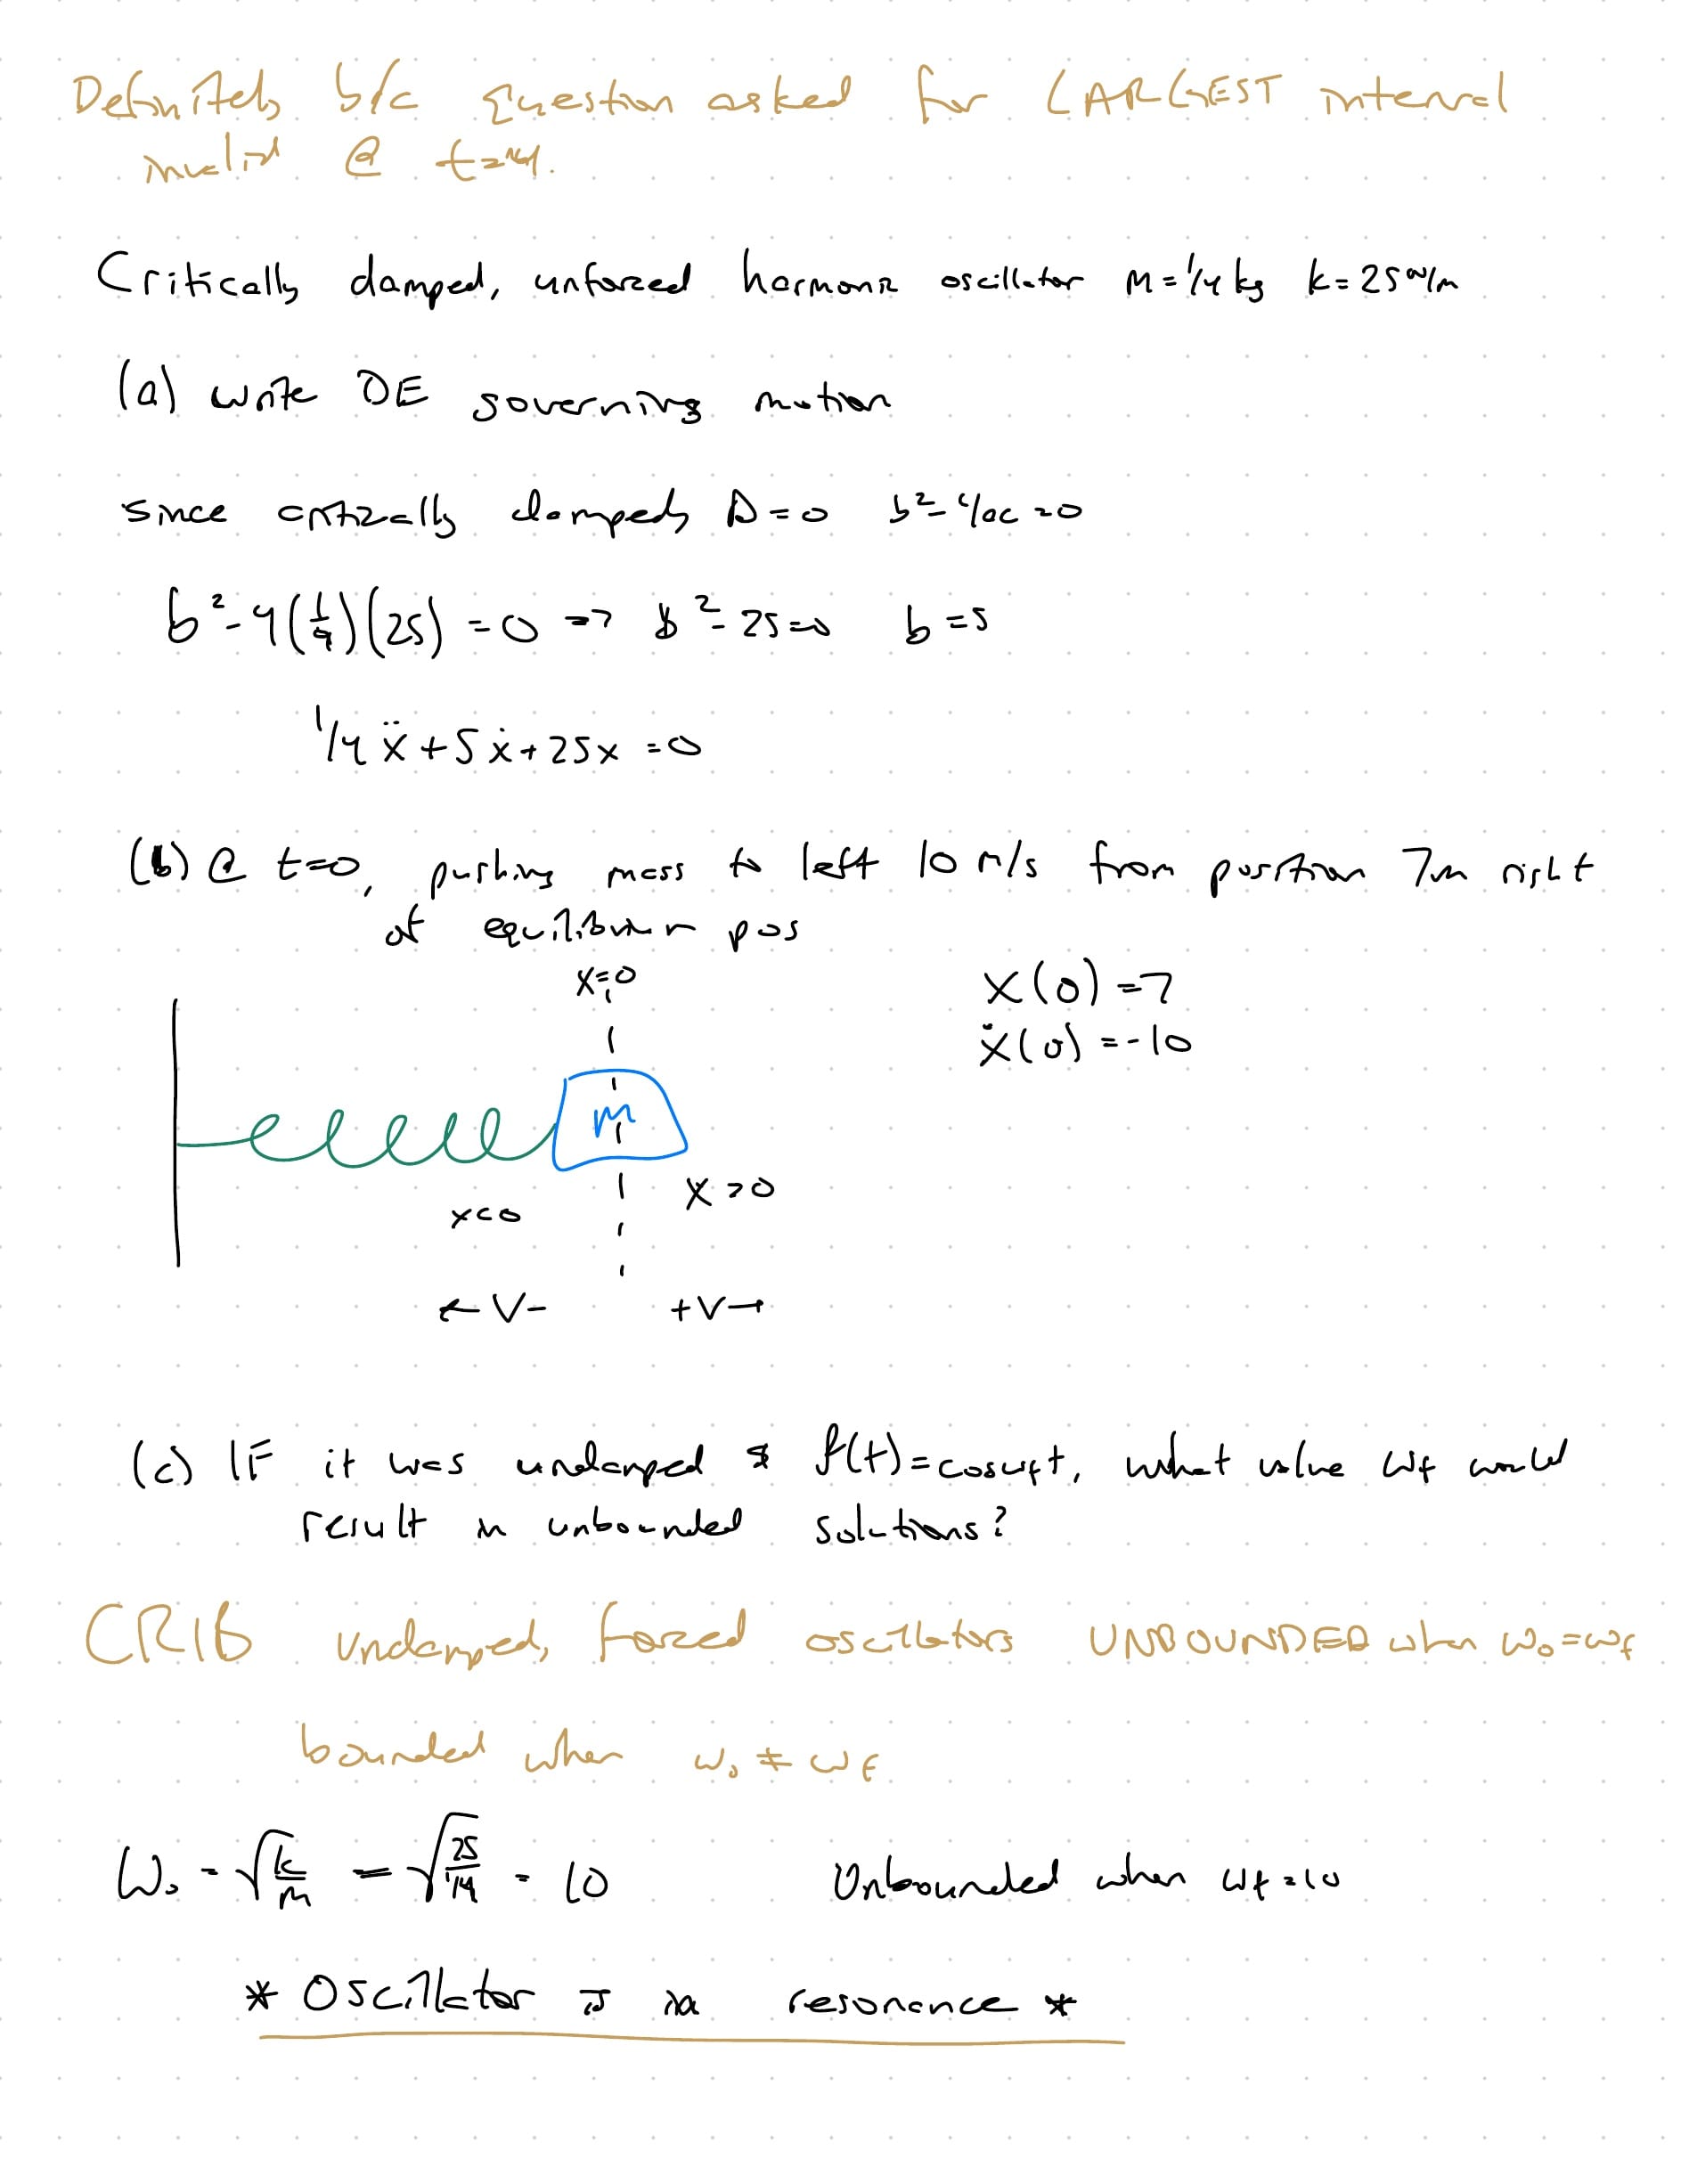 Definitely b/c question asked for LARGEST interval
invalid @ t=4.
Critically damped, unforced harmonic oscillator m=1/4 kg k=25 N/m
(a) write DE governing motion
since critically damped, D=0 b²-4ac=0
b²-4(1/4)(25)=0 => b²-25=0 b=5
1/4 ẍ+5ẋ+25x=0
(b) @ t=0, pushing mass to left 10 m/s from position 7m right
of equilibrium pos
x=0
x(0)=7
ẋ(0)=-10
m
x>0
x<0
← V- +V→
(c) IF it was undamped & f(t)=cosωft, what value ωf would
result in unbounded solutions?
CRIB undamped, forced oscillators UNBOUNDED when ω₀=ωf
bounded when ω₀≠ωf
ω₀=√(k/m) =√(25/1/4) = 10 Unbounded when ωf=10
* Oscillator is in resonance *